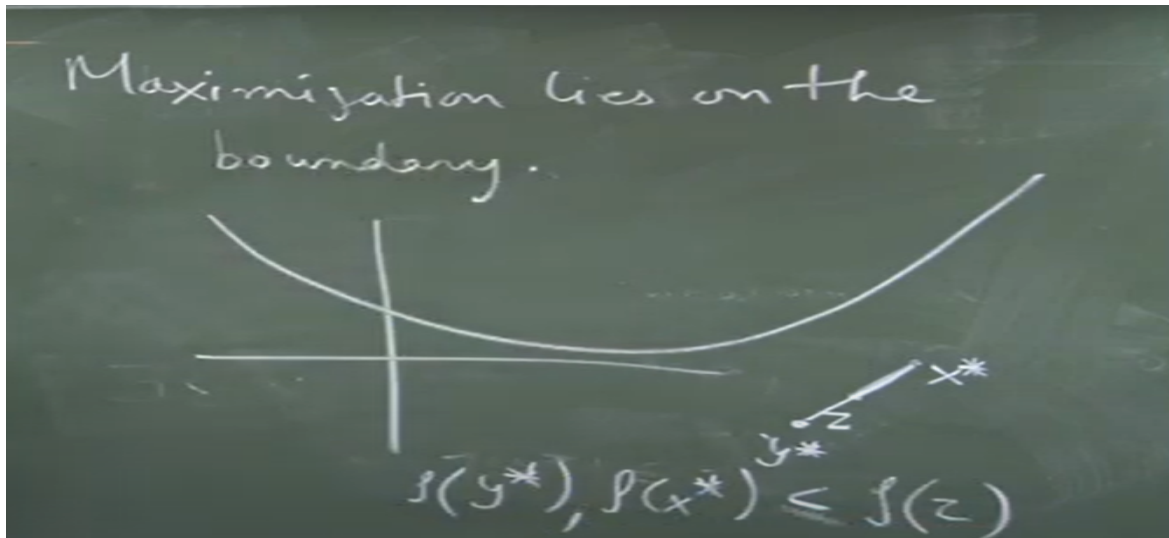 Maximization lies on the
boundary.
x*
z
y*
f(y*), f(x*) ≤ f(z)